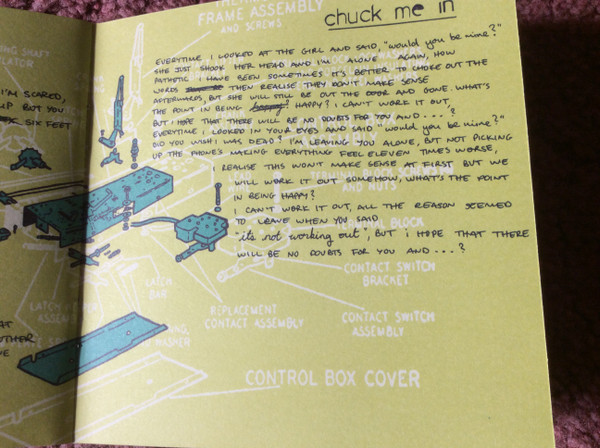 FRAME ASSEMBLY
AND SCREWS
chuck me in
EVERYTIME I LOOKED AT THE GIRL AND SAID, "would you be mine?"
SHE JUST SHOOK HER HEAD AND I'M ALONE AGAIN, HOW
PATHETIC I HAVE BEEN SOMETIMES IT'S BETTER TO CHOKE OUT THE
WORDS THEN REALISE THEY DON'T MAKE SENSE
AFTERWARDS, BUT SHE WILL STILL BE OUT THE DOOR AND GONE. WHAT'S
THE POINT IN BEING HAPPY? I CAN'T WORK IT OUT,
BUT I HOPE THAT THERE WILL BE NO DOUBTS FOR YOU AND....?
EVERYTIME I LOOKED IN YOUR EYES AND SAID "would you be mine?",
DID YOU WISH I WAS DEAD? I'M LEAVING YOU ALONE, BUT NOT PICKING
UP THE PHONE'S MAKING EVERYTHING FEEL ELEVEN TIMES WORSE,
I REALISE THIS WON'T MAKE SENSE AT FIRST BUT WE
WILL WORK IT OUT SOMEHOW, WHAT'S THE POINT
IN BEING HAPPY?
I CAN'T WORK IT OUT, ALL THE REASON SEEMED
TO LEAVE WHEN YOU SAID
"it's not working out", BUT I HOPE THAT THERE
WILL BE NO DOUBTS FOR YOU AND....?
I'M SCARED,
UP BUT YOU
SIX FEET
SHAFT
AND NUTS
BLOCK
CONTACT SWITCH
BRACKET
LATCH
BAR
LATCH
REPLACEMENT
CONTACT ASSEMBLY
CONTACT SWITCH
ASSEMBLY
WASHER
CONTROL BOX COVER